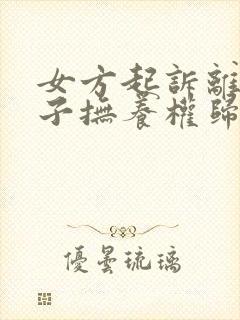 女方起訴離
子撫養權歸
優曇琉璃